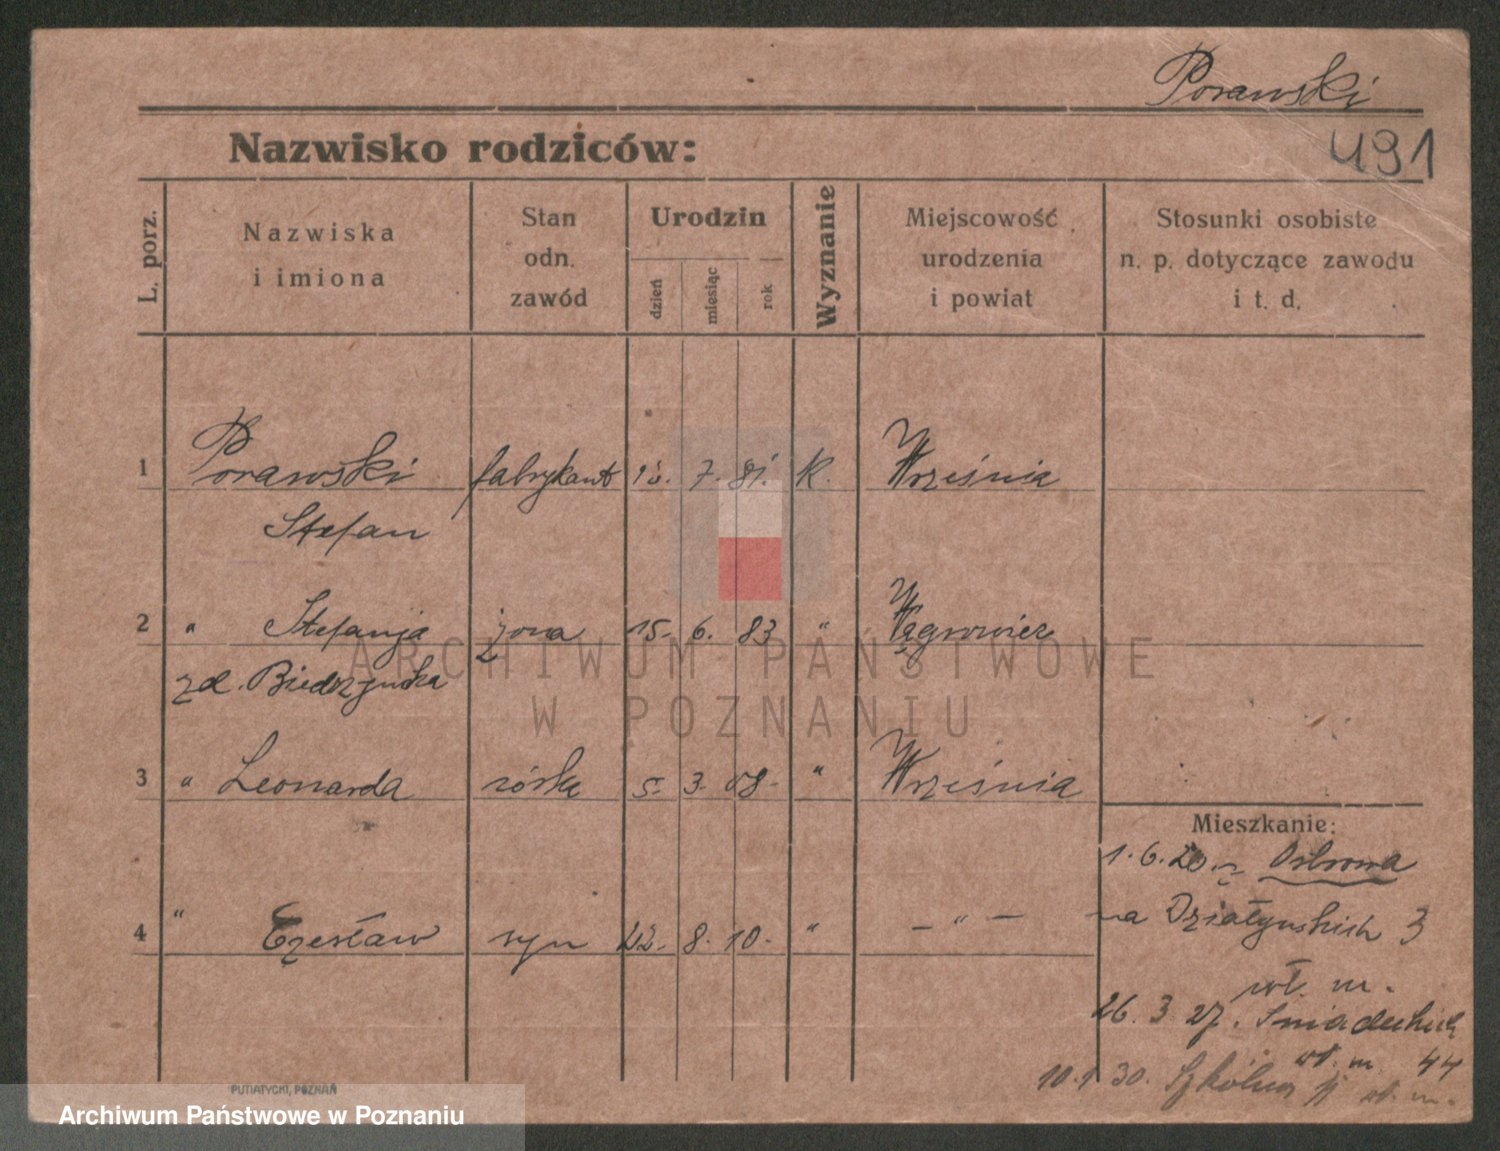 Porawski
491
Nazwisko rodziców:
L. porz.
Nazwiska
i imiona
Stan
odn.
zawód
Urodzin
dzień
miesiąc
rok
Wyznanie
Miejscowość
urodzenia
i powiat
Stosunki osobiste
n. p. dotyczące zawodu
i t. d.
1 Porawski fabrykant 7. 81. K. Września
Stefan
2 " Stefanja żona 15. 6. 83 " Wągrowiec
zd. Biedrzyńska
3 " Leonarda córka 5. 3. 08. " Września
4 " Czesław syn 22. 8. 10. " — " —
Mieszkanie:
1. 6. 20. z Ostrowa
na Działyńskich 3
wł. m.
26. 3. 27. Śniadeckich
wł. m. 44
10.1 30. Szkolna wł. m.
PUTIATYCKI, POZNAŃ
ARCHIWUM PAŃSTWOWE
W POZNANIU
Archiwum Państwowe w Poznaniu